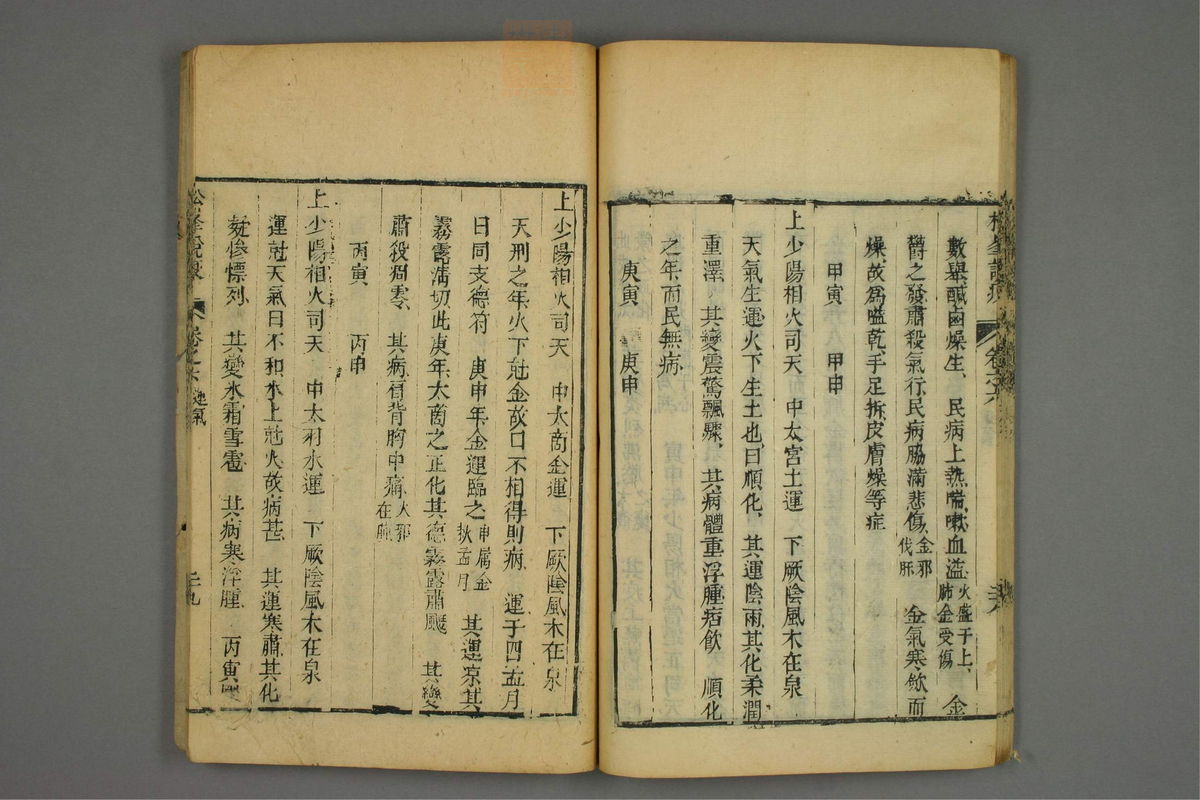 數舉、鹹鹵燥生、民病、上熱喘嗽血溢、火盛于上、肺金受傷 金
鬱之發、肅殺氣行、民病脇滿悲傷、金邪伐肝 金氣寒、歛而
燥、故為嗌乾、手足拆、皮膚燥等症
甲寅 甲申
上少陽相火司天 中太宮土運 下厥陰風木在泉
天氣生運、火下生土也、曰順化、其運陰雨、其化柔潤
重澤、其變震驚飄驟、其病體重浮腫痞飲 順化
之年、而民無病、
庚寅 庚申
上少陽相火司天 中太商金運 下厥陰風木在泉
天刑之年、火下尅金、故曰不相得則病、運于四孟月
曰同支德符 庚申年、金運臨之、申屬金狄孟月 其運凉、其
霧露蕭切、此庚年太商之正化、其德霧露肅飈 其變
肅殺凋零、其病肩背胸中痛、火邪在肺
丙寅 丙申
上少陽相火司天 中太羽水運 下厥陰風木在泉
運尅天氣、曰不和、水上尅火、故病甚 其運寒肅、其化
凝慘慓列、其變氷霜雪雹 其病寒浮腫、丙寅
松峯說疫 卷之六 運氣 二九